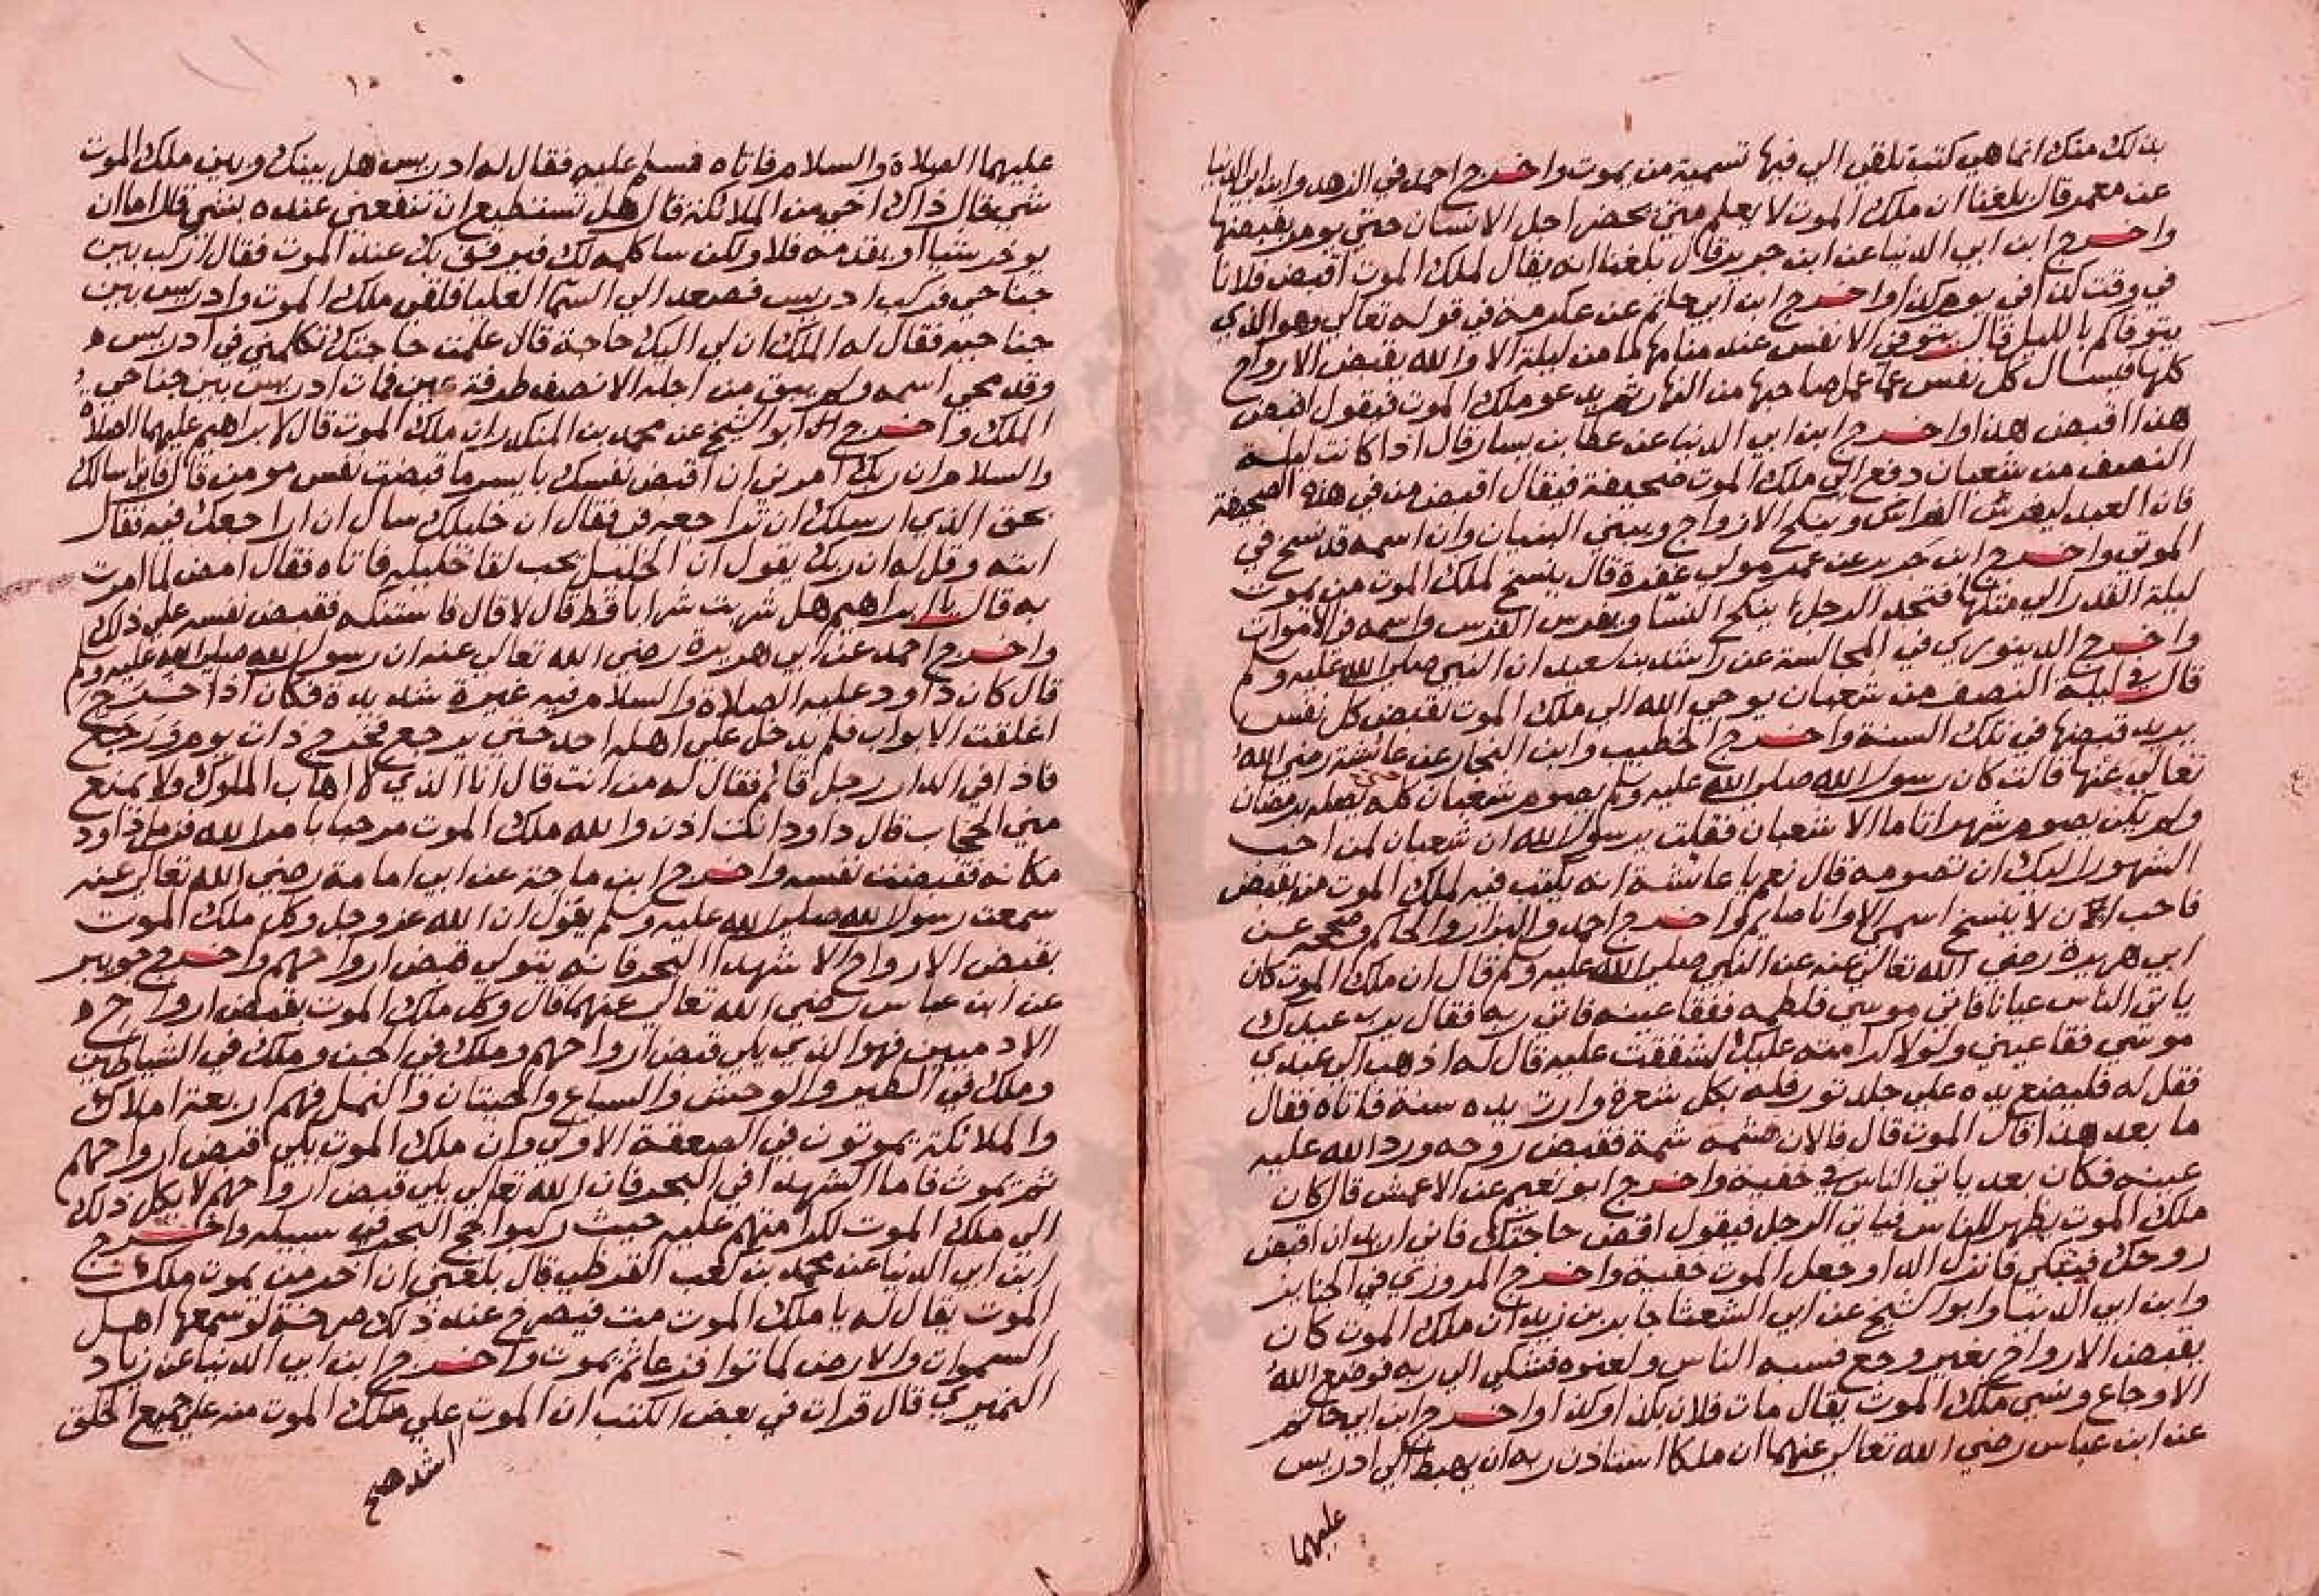 بذلك منك انما هي كتب تلقى الي فيها تسمية من يموت واخرج احمد في الزهد وابن ابي الدنيا
عن معمر قال بلغنا ان ملك الموت لا يعلم متى يحضر اجل الانسان حتى يومر بقبضها
واخرج ابن ابي الدنيا عن ابن جريج قال بلغنا انه يقال لملك الموت اقبض فلانا
في وقت كذا في يوم كذا واخرج ابن ابي حاتم عن عكرمة في قوله تعالى وهو الذي
يتوفاكم بالليل قال يتوفى الانفس عند منامها ما من ليلة الا والله يقبض الارواح
كلها فيسال كل نفس عما عمل صاحبها من النهار ثم يدعو ملك الموت فيقول اقبض
هذا اقبض هذا واخرج ابن ابي الدنيا عن عطا بن يسار قال اذا كانت ليلة
النصف من شعبان دفع الى ملك الموت صحيفة فيقال اقبض من في هذه الصحيفة
فان العبد ليفرش الفراش وينكح الازواج ويبني البنيان وان اسمه قد نسخ في
الموتى واخرج ابن جرير عن عمر مولى غفرة قال ينسخ لملك الموت من يموت
ليلة القدر الى مثلها فتجد الرجل ينكح النسا ويغرس الغرس واسمه في الاموات
واخرج الدينوري في المجالسة عن راشد بن سعيد ان النبي صلى الله عليه وسلم
قال في ليلة النصف من شعبان يوحي الله الى ملك الموت بقبض كل نفس
يريد قبضها في تلك السنة واخرج الخطيب وابن النجار عن عائشة رضي الله
تعالى عنها قالت كان رسول الله صلى الله عليه وسلم يصوم شعبان كله حتى يصله برمضان
ولم يكن يصوم شهرا تاما الا شعبان فقلت يرسول الله ان شعبان لمن احب
الشهور اليك ان تصومه قال نعم يا عائشة انه يكتب فيه لملك الموت من يقبض
فاحب ان لا ينسخ اسمي الا وانا صايم واخرج احمد والبزار والحاكم وصححه عن
ابي هريرة رضي الله تعالى عنه عن النبي صلى الله عليه وسلم قال ان ملك الموت كان
ياتي الناس عيانا فاتى موسى فلطمه ففقا عينه فاتى ربه فقال يرب عبدك
موسى فقا عيني ولولا كرامته عليك لشققت عليه قال له اذهب الى عبدي
فقل له فليضع يده على جلد ثور فله بكل شعرة وارت يده سنة فاتاه فقال
ما بعد هذا قال الموت قال فالان فشمه شمة فقبض روحه ورد الله عليه
عينه فكان بعد ياتي الناس في خفية واخرج ابو نعيم عن الاعمش قال كان
ملك الموت يظهر للناس فياتي الرجل فيقول اقض حاجتك فاني اريد ان اقبض
روحك فشكي فانزل الدا وجعل الموت خفية واخرج المروزي في الجنايز
وابن ابي الدنيا وابو الشيخ عن ابي الشعثا جابر بن زيد ان ملك الموت كان
يقبض الارواح بغير وجع فسبه الناس ولعنوه فشكي الى ربه فوضع الله
الاوجاع ونسي ملك الموت يقال مات فلان بكذا وكذا واخرج ابن ابي حاتم
عن ابن عباس رضي الله تعالى عنهما ان ملكا استاذن ربه ان يهبط الى ادريس
عليهما
١٠
عليهما الصلاة والسلام فاتاه فسلم عليه فقال له ادريس هل بينك وبين ملك الموت
شي قال ذاك اخي من الملائكة قال هل تستطيع ان تنفعني عنده بشي قال اما ان
يوخر شيا او يقدمه فلا ولكن ساكلمه لك فيرفق بك عند الموت فقال اركب بين
جناحي فركب ادريس فصعد الى السما العليا فلقي ملك الموت وادريس بين
جناحيه فقال له الملك ان لي اليك حاجة قال علمت حاجتك تكلمني في ادريس
وقد محي اسمه ولم يبق من اجله الا نصف طرفة عين فمات ادريس بين جناحي
الملك واخرج ابو الشيخ عن محمد بن المنكدر ان ملك الموت قال لابراهيم عليهما الصلاة
والسلام ان ربك امرني ان اقبض نفسك بايسر ما قبضت نفس مومن قال فاني اسالك
بحق الذي ارسلك ان تراجعه في فقال ان خليلك سال ان اراجعك فيه فقال
ايته وقل له ان ربك يقول ان الخليل يحب لقا خليله فاتاه فقال امض لما امرت
به قال يا ابراهيم هل شربت شرابا قط قال لا قال فاستنكه فقبض نفسه على ذلك
واخرج احمد عن ابي هريرة رضي الله تعالى عنه ان رسول الله صلى الله عليه وسلم
قال كان داود عليه الصلاة والسلام فيه غيرة شديدة فكان اذا خرج
اغلقت الابواب فلم يدخل على اهله احد حتى يرجع فخرج ذات يوم ورجع
فاذا في الدار رجل قائم فقال له من انت قال انا الذي لا اهاب الملوك ولا يمنع
مني الحجاب قال داود انت اذن والله ملك الموت مرحبا بامر الله فزمل داود
مكانه فقبضت نفسه واخرج ابن ماجة عن ابي امامة رضي الله تعالى عنه
سمعت رسول الله صلى الله عليه وسلم يقول ان الله عز وجل وكل ملك الموت
بقبض الارواح الا شهدا البحر فانه يتولى قبض ارواحهم واخرج جويبر
عن ابن عباس رضي الله تعالى عنهما قال وكل ملك الموت بقبض ارواح
الادميين فهو الذي يلي قبض ارواحهم وملك في الجن وملك في الشياطين
وملك في الطير والوحش والسباع والحيتان والنمل فهم اربعة املاك
والملائكة يموتون في الصعقة الاولى وان ملك الموت يلي قبض ارواحهم
ثم يموت فاما الشهدا في البحر فان الله تعالى يلي قبض ارواحهم لا يكل ذلك
الى ملك الموت لكرامتهم عليه حيث ركبوا لجج البحر في سبيله واخرج
ابن ابي الدنيا عن محمد بن كعب القرظي قال بلغني ان اخر من يموت ملك
الموت يقال له يا ملك الموت مت فيصرخ عند ذلك صرخة لو سمعها اهل
السموات والارض لماتوا فزعا ثم يموت واخرج ابن ابي الدنيا عن زياد
النميري قال قرات في بعض الكتب ان الموت على ملك الموت منه على جميع الخلق
اشد صح